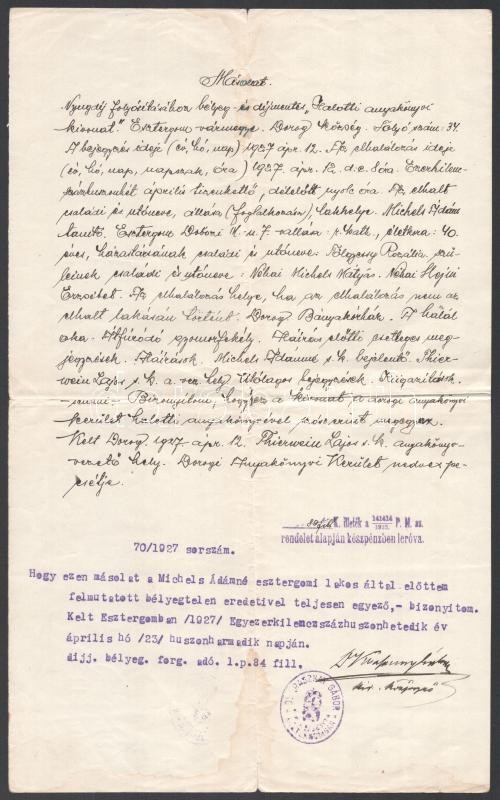 Másolat.
Nyugdíj folyósításához bélyeg- és díjmentes "Halotti anyakönyvi
kivonat." Esztergom vármegye. Dorog község. Folyó szám: 34.
A bejegyzés ideje (év, hó, nap) 1927 ápr. 12. Az elhalálozás ideje
(év, hó, nap, napszak, óra) 1927. ápr. 12. d.e. 8 óra. Ezerkilenc-
százhuszonhét április tizenkettő, délelőtt nyolc óra. Az elhalt
családi és utóneve, állása (foglalkozása) lakhelye. Michels Ádám
tanító. Esztergom Dobozi u. 7. vallása: r. kath., életkora: 40
éves, házastársának családi és utóneve: Rozália, szü-
leinek családi és utóneve: Néhai Michels Mátyás. Néhai
Erzsébet. Az elhalálozás helye, ha az elhalálozás nem az
elhalt lakásán történt: Dorog Bányakórház. A halál
oka. Átfúródó gyomorfekély. Aláírás előtti esetleges meg-
jegyzések. Aláírások. Michels Ádámné s.k. bejelentő. Thier-
wein Lajos s.k. a. vez. hely. Utólagos bejegyzések. Kiigazítások.
-semmi- Bizonyítom, hogy ez a kivonat, a dorogi anyakönyvi
kerület halotti anyakönyvével szószerint megegyez.
Kelt Dorog, 1927. ápr. 12. Thierwein Lajos s.k. anyaköny-
vvezető hely. Dorogi Anyakönyvi Kerület nedves pe-
csétje.
84 fill K. illeték a 141414/1925. P. M. sz.
rendelet alapján készpénzben leróva.
70/1927 sorszám.
Hogy ezen másolat a Michels Ádámné esztergomi lakos által előttem
felmutatott bélyegtelen eredetivel teljesen egyező,- bizonyitom.
Kelt Esztergomban /1927/ Egyezerkilencszázhuszonhetedik év
április hó /23/ huszonharmadik napján.
dijj. bélyeg. forg. adó. 1.p.84 fill.
kir. közjegyző
GÁBOR